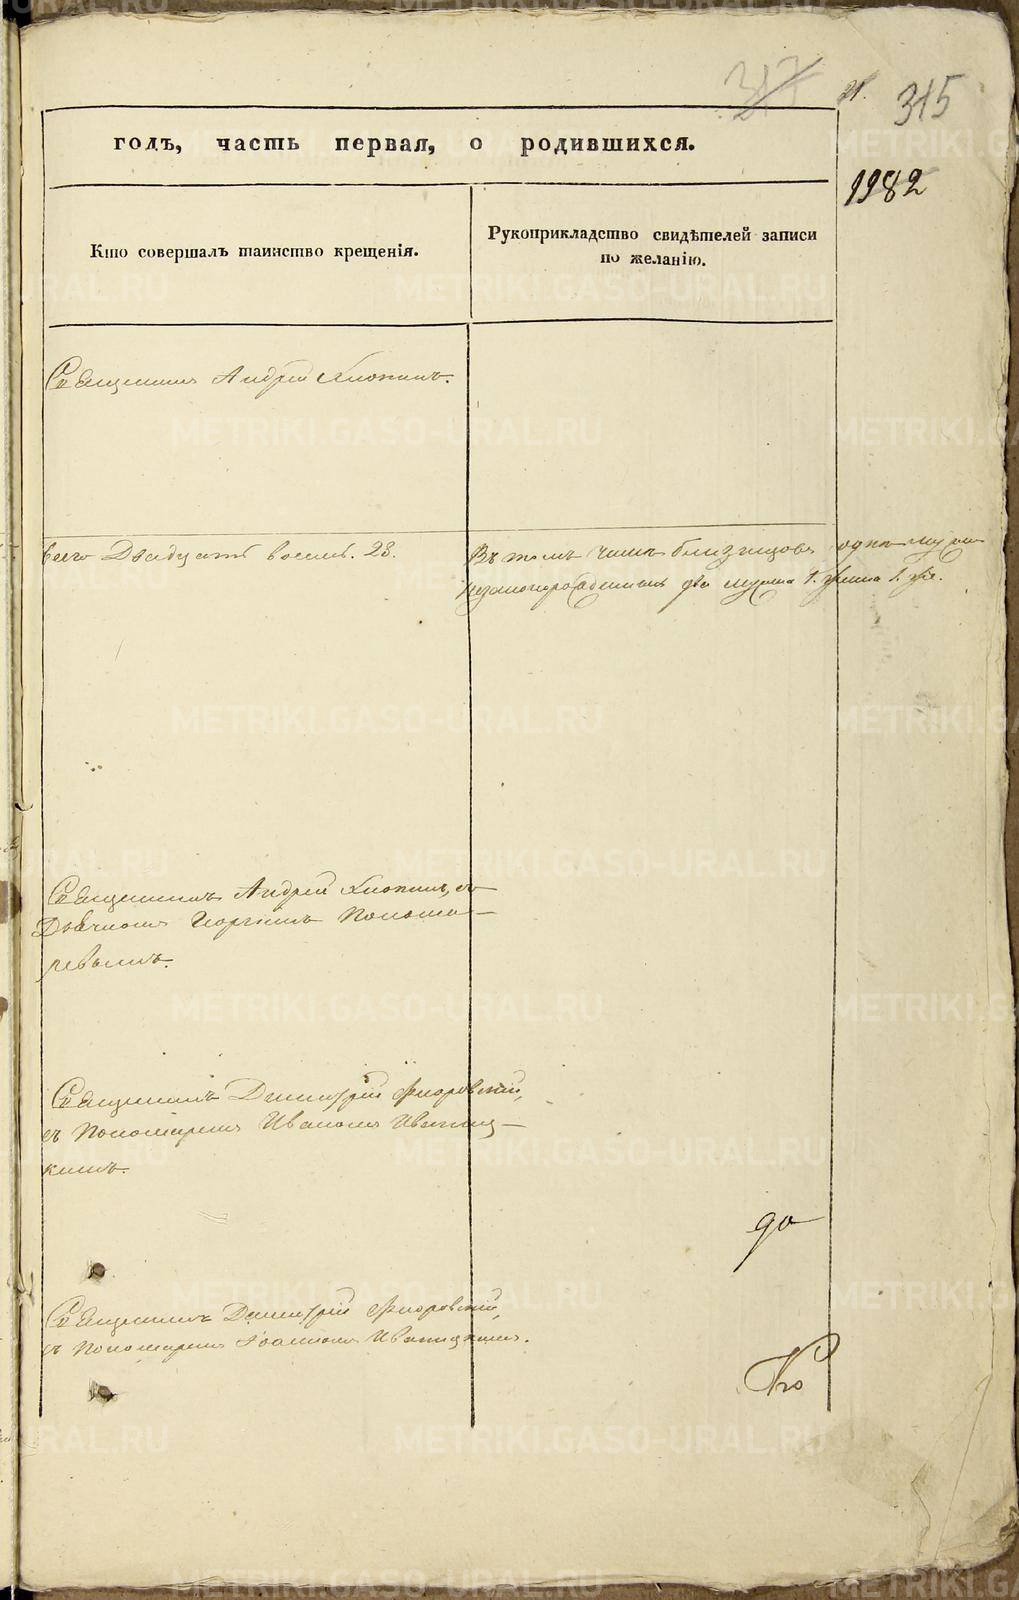 317
21.
315
1982
годъ, часть первая, о родившихся.
Кто совершалъ таинство крещенія.
Рукоприкладство свидѣтелей записи
по желанію.
Священникъ Андрей Хлопинъ.
Всего Двадцать восемь. 28.
Въ томъ числѣ близнецовъ одна
незаконорожденныхъ два мужеска 1. женска 1.
Священникъ Андрей Хлопинъ, съ
Дьячкомъ Георгіемъ Понома-
ревымъ.
Священникъ Димитрій Флоровскій,
съ Пономаремъ Иваномъ Ивениц-
кимъ.
до
Священникъ Димитрій Флоровскій,
съ Пономаремъ Іоанномъ Ивеницкимъ.
METRIKI.GASO-URAL.RU